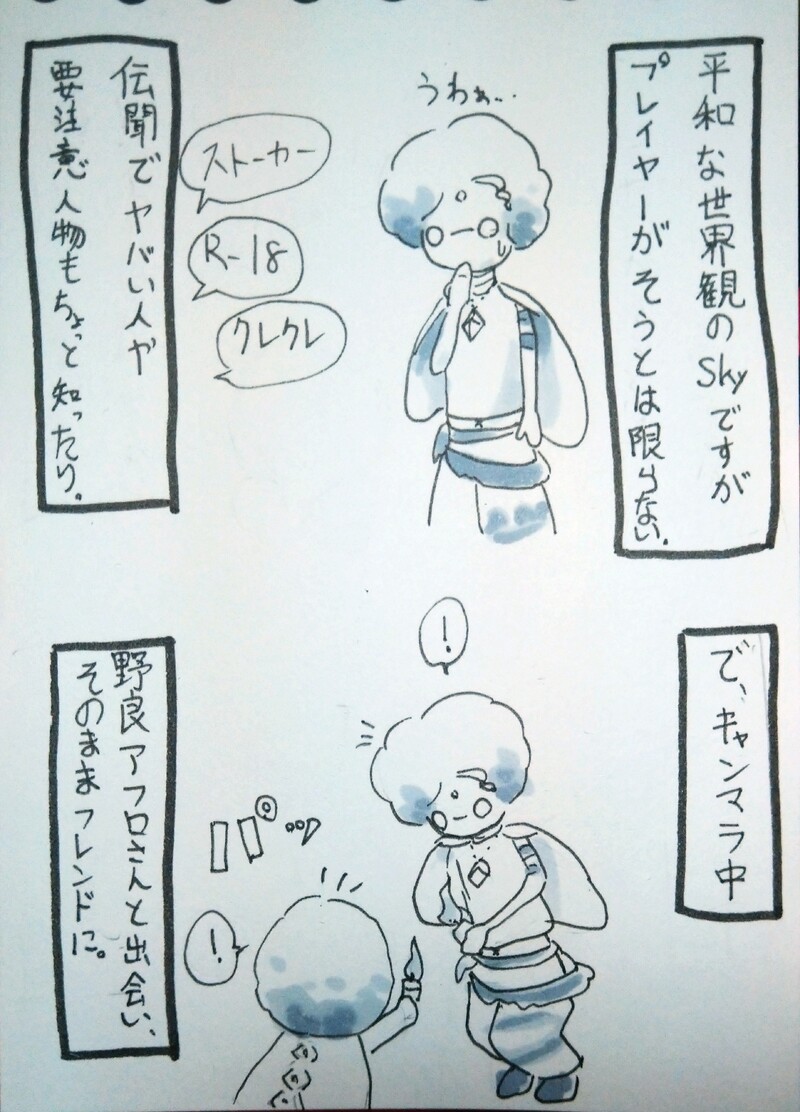 平和な世界観のSkyですが
プレイヤーがそうとは限らない.
うわぁ...
ストーカー
R-18
クレクレ
伝聞でヤバい人や
要注意人物もちょっと知ったり。
で、キャンマラ中
!
パァ…
!
野良アフロさんと出会い、
そのままフレンドに。